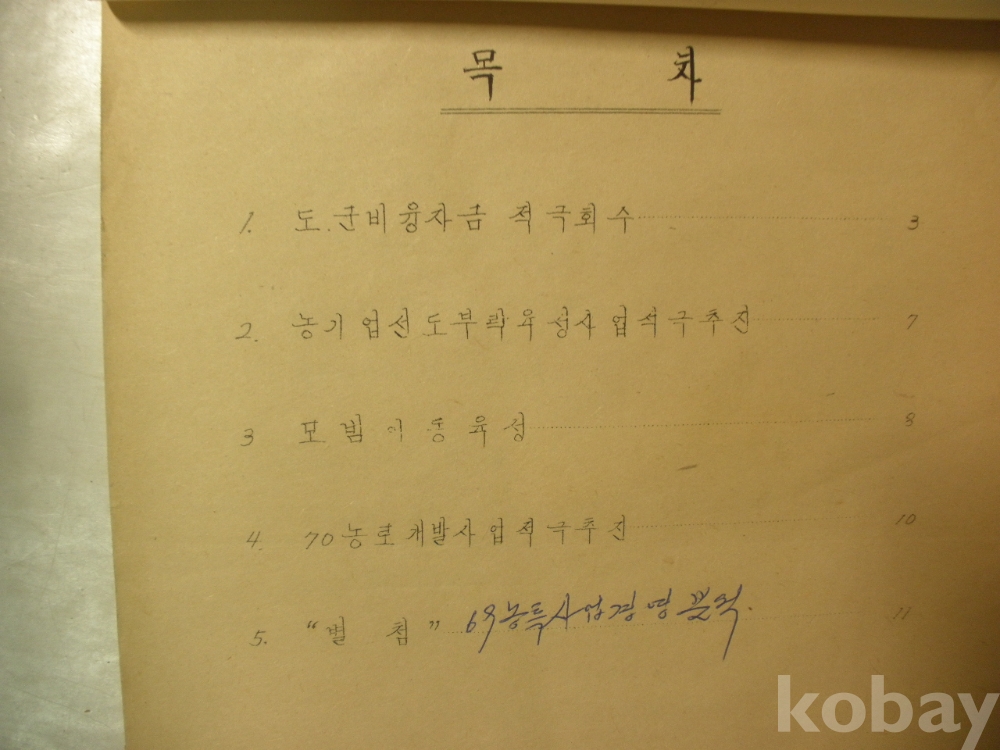 목 차
1. 도.군비융자금 적극회수 3
2. 농기업선도부락육성사업적극추진 7
3 모범이동육성 8
4. 70농로개발사업적극추진 10
5. "별 첨" 69농특사업경영분석. 11
kobay